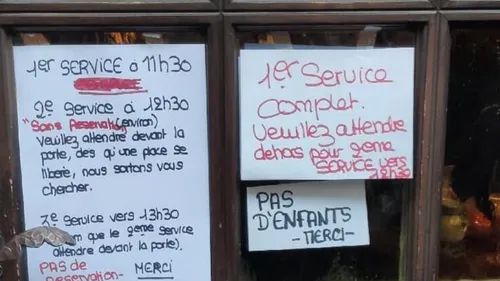 1er SERVICE à 11h30
2e Service à 12h30
"Sans Reservation (environ)
Veuillez attendre devant la
porte, des qu'une place se
libere, nous sortons vous
chercher.
3e Service vers 13h30
que le 2eme service
attendre devant la porte).
PAS de
Reservation- MERCI
1er Service
Complet.
Veuillez attendre
dehors pour 2eme
SERVICE vers
12H30
PAS
D'ENFANTS
-MERCI-